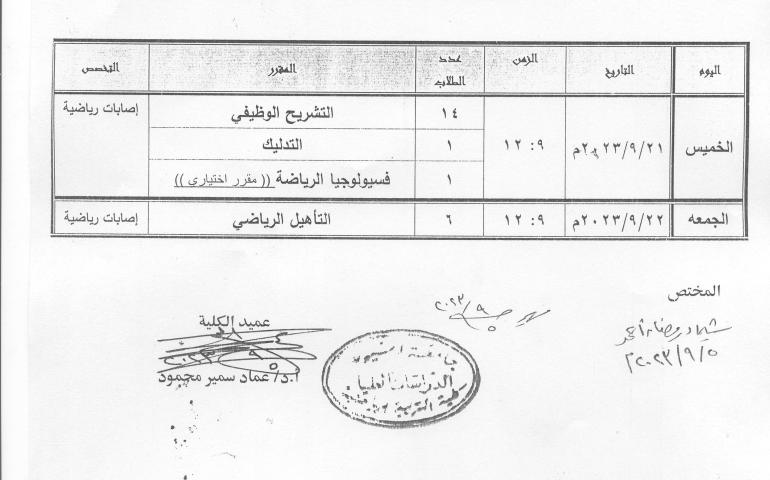 اليوم التاريخ الزمن عدد الطلاب المقرر التخصص
الخميس ٢٠٢٣/٩/٢١م ٩: ١٢ ١٤ التشريح الوظيفي إصابات رياضية
١ التدليك
١ فسيولوجيا الرياضة (( مقرر اختيارى ))
الجمعه ٢٠٢٣/٩/٢٢م ٩: ١٢ ٦ التأهيل الرياضي إصابات رياضية
المختص
٢٠٢٣/٩/٥
٢٠٢٣/٩/٥
عميد الكلية
أ.د/ عماد سمير محمود
جامعة أسيوط
الدراسات العليا
كلية التربية